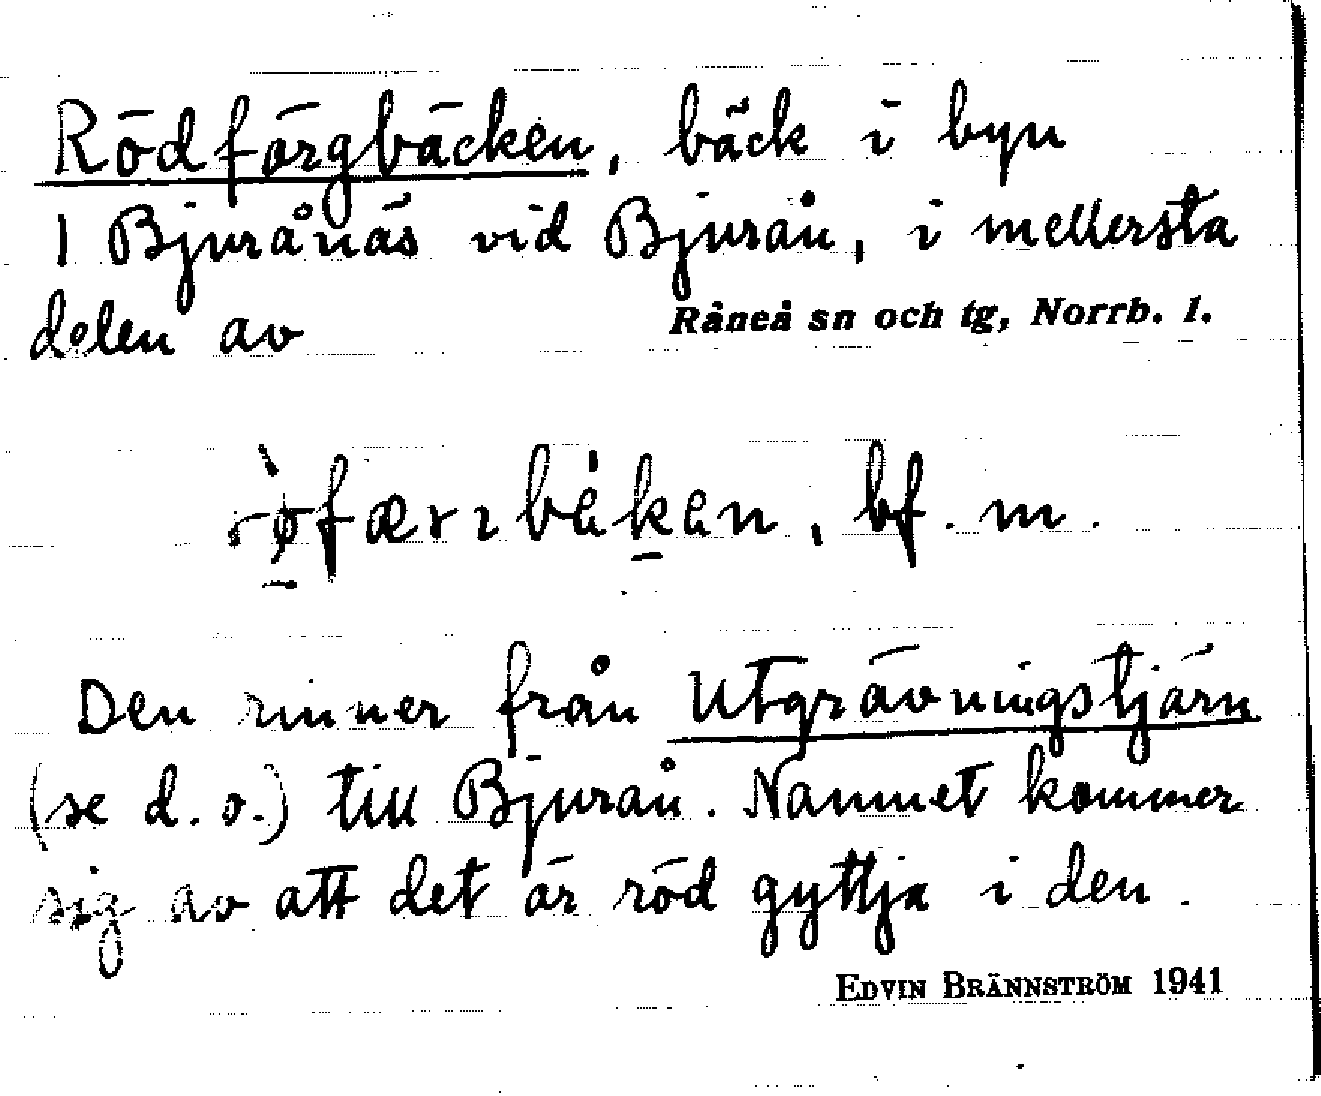 Rödfärgbäcken, bäck i byn
1 Bjurånäs vid Bjurån, i mellersta
delen av Råneå sn och tg, Norrb. l.
bf. m.
Den rinner från Utgrävningstjärn
(se d. o.) till Bjurån. Namnet kommer
sig av att det är röd gyttja i den.
EDVIN BRÄNNSTRÖM 1941